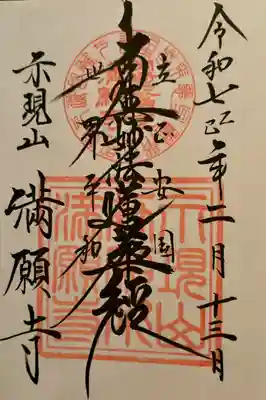 令和七乙巳年二月十三日
立正安国
南無妙法蓮華経
世界平和
示現山
満願寺